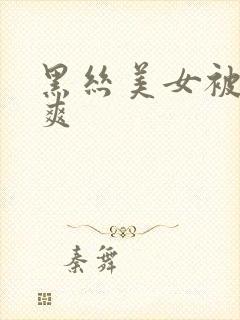 黑丝美女被
爽
秦舞